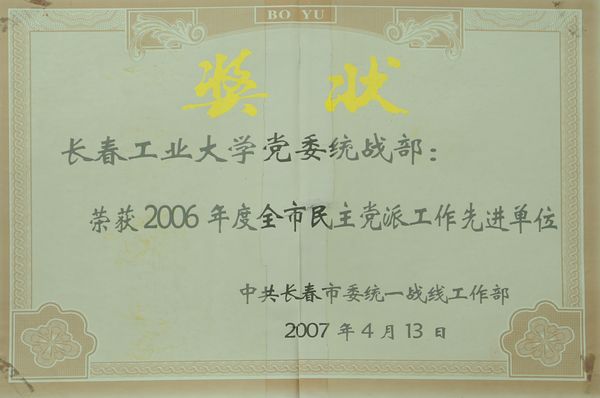 BO YU
奖状
长春工业大学党委统战部：
荣获2006年度全市民主党派工作先进单位
中共长春市委统一战线工作部
2007年4月13日